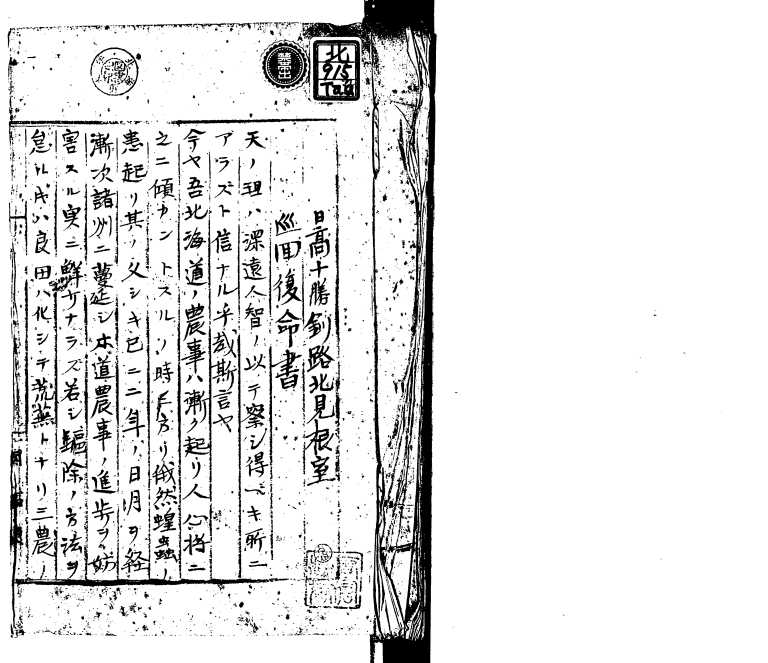 北
915
Tag
日高十勝釧路北見根室
巡回復命書
天ノ理ハ深遠人智ノ以テ察シ得ベキ所ニ
アラズト信ナル乎哉斯言ヤ
今ヤ吾北海道ノ農事ハ漸ク起リ人心将ニ
之ニ傾カントスルノ時ニ方リ俄然蝗蟲ノ
患起リ其ノ久シキ已ニ二年ノ日月ヲ経
漸次諸州ニ蔓延シ本道農事ノ進歩ヲ妨
害スル実ニ鮮少ナラズ若シ驅除ノ方法ヲ
怠ルトキハ良田ハ化シテ荒蕪トナリ三農ノ